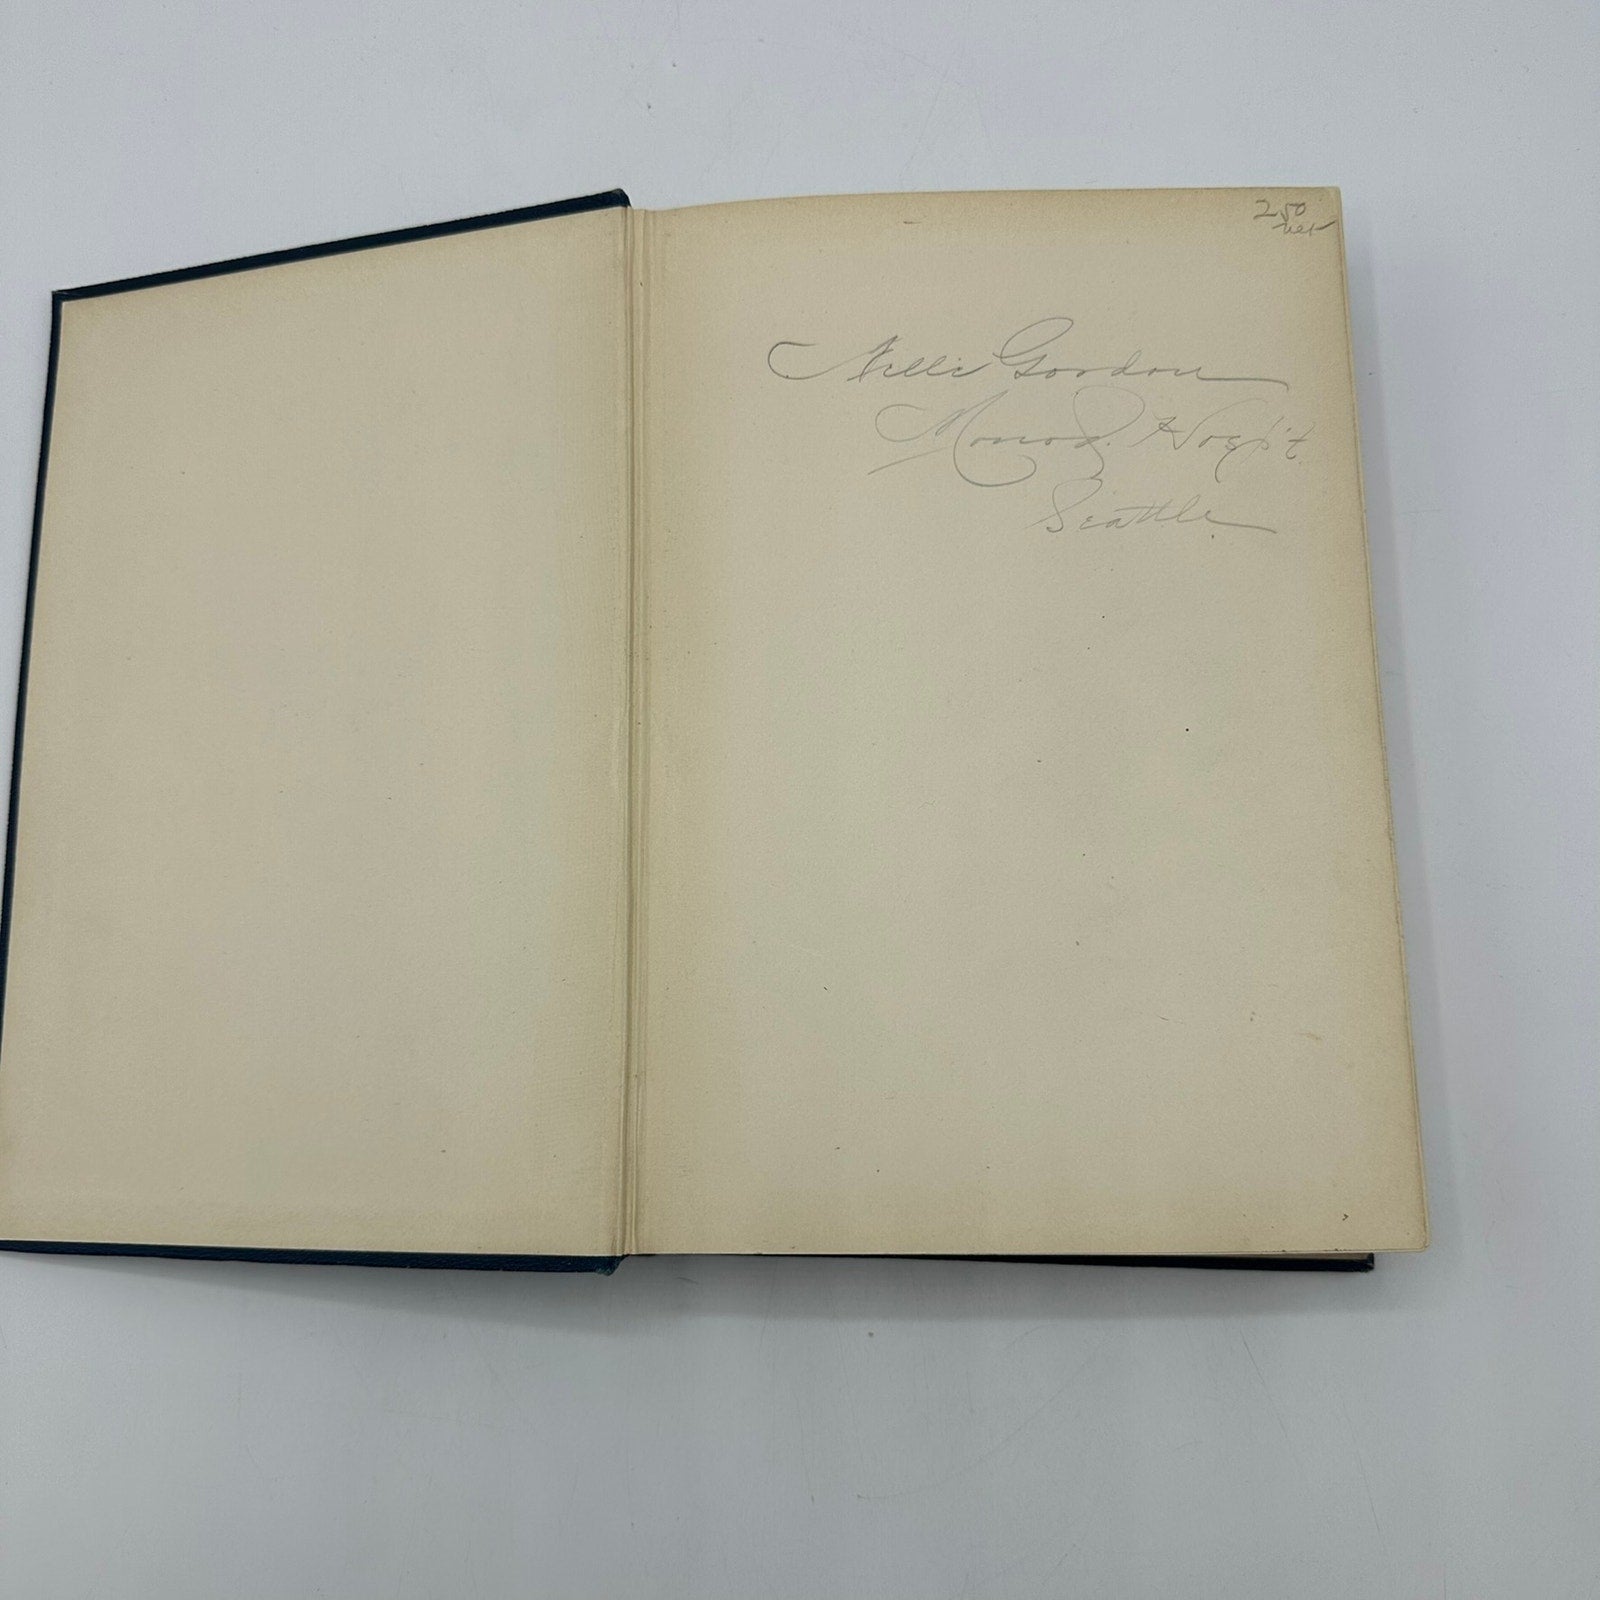 2 50
net
Nelli Gordon
Monod. Hosp't.
Seattle.